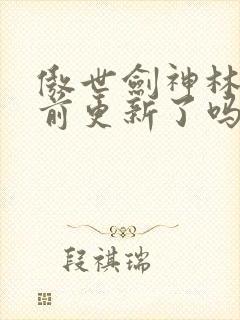 傲世劍神林
前更新了吗
段祺瑞